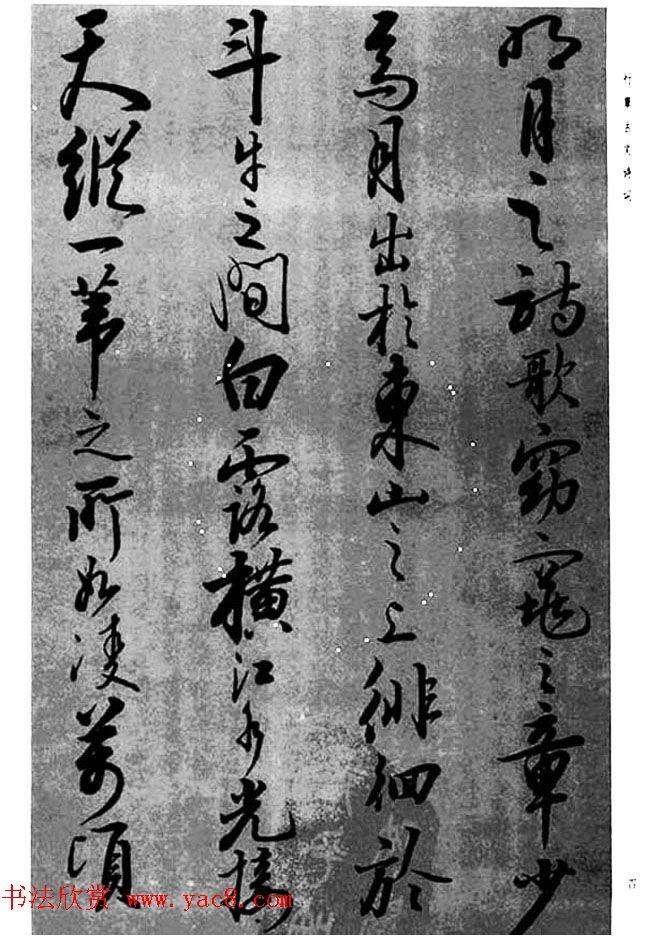 明月之詩歌窈窕之章少
焉月出於東山之上徘徊於
斗牛之間白露橫江水光接
天縱一葦之所如凌萬頃
书法欣赏 www.yac8.com